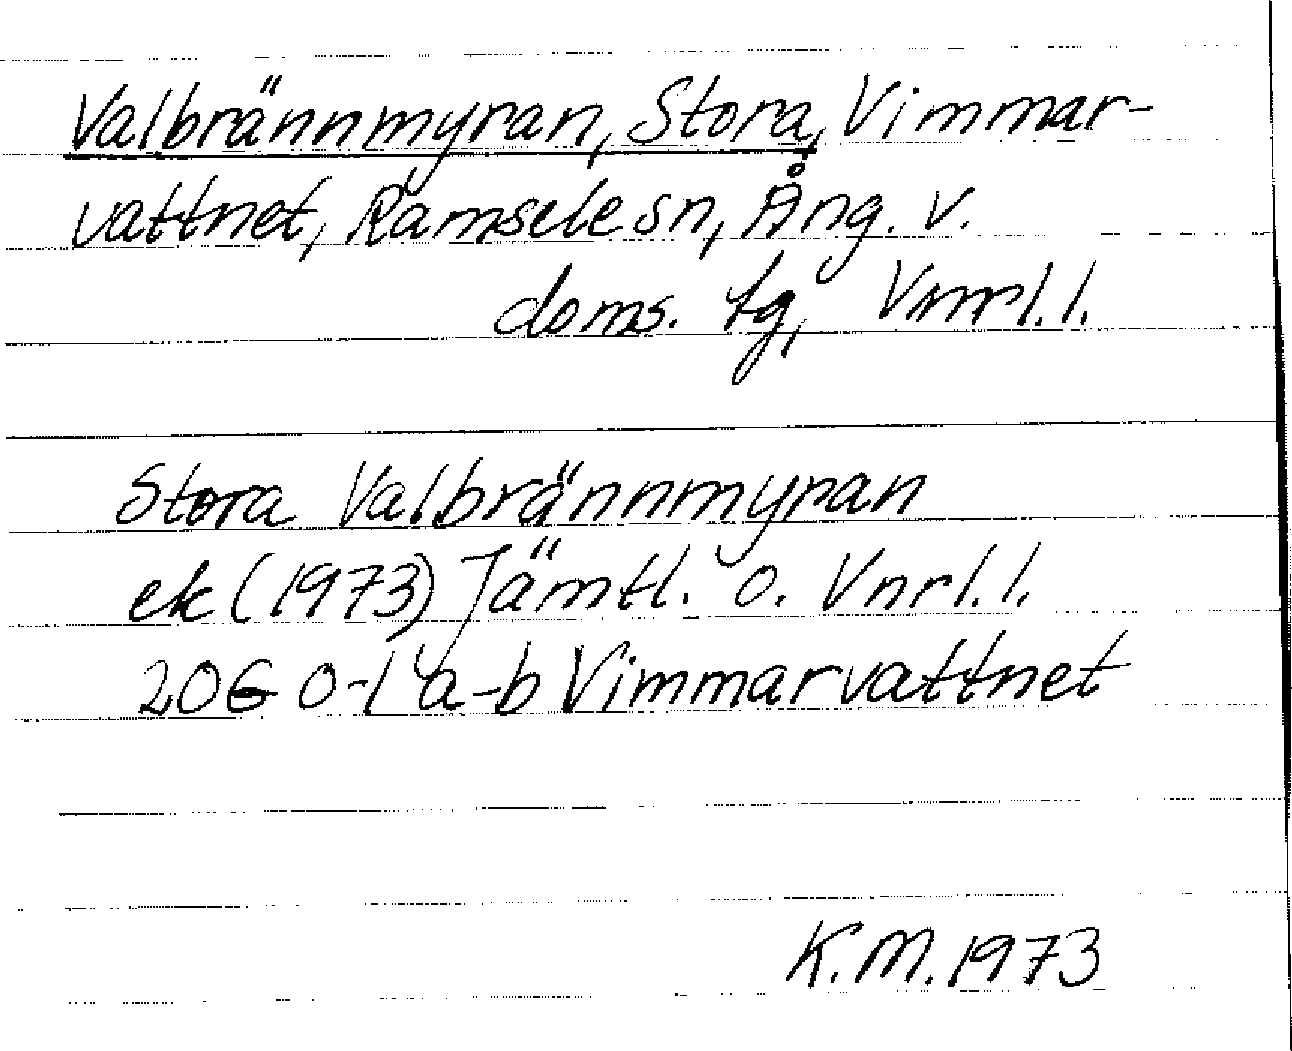 Valbrännmyran, Stora, Vimmar-
vattnet, Ramsele sn, Ång. v.
doms. tg, Vnrl.l.
Stora Valbrännmyran
ek (1973) Jämtl. o. Vnrl.l.
20G 0-1 a-b Vimmarvattnet
K.M. 1973